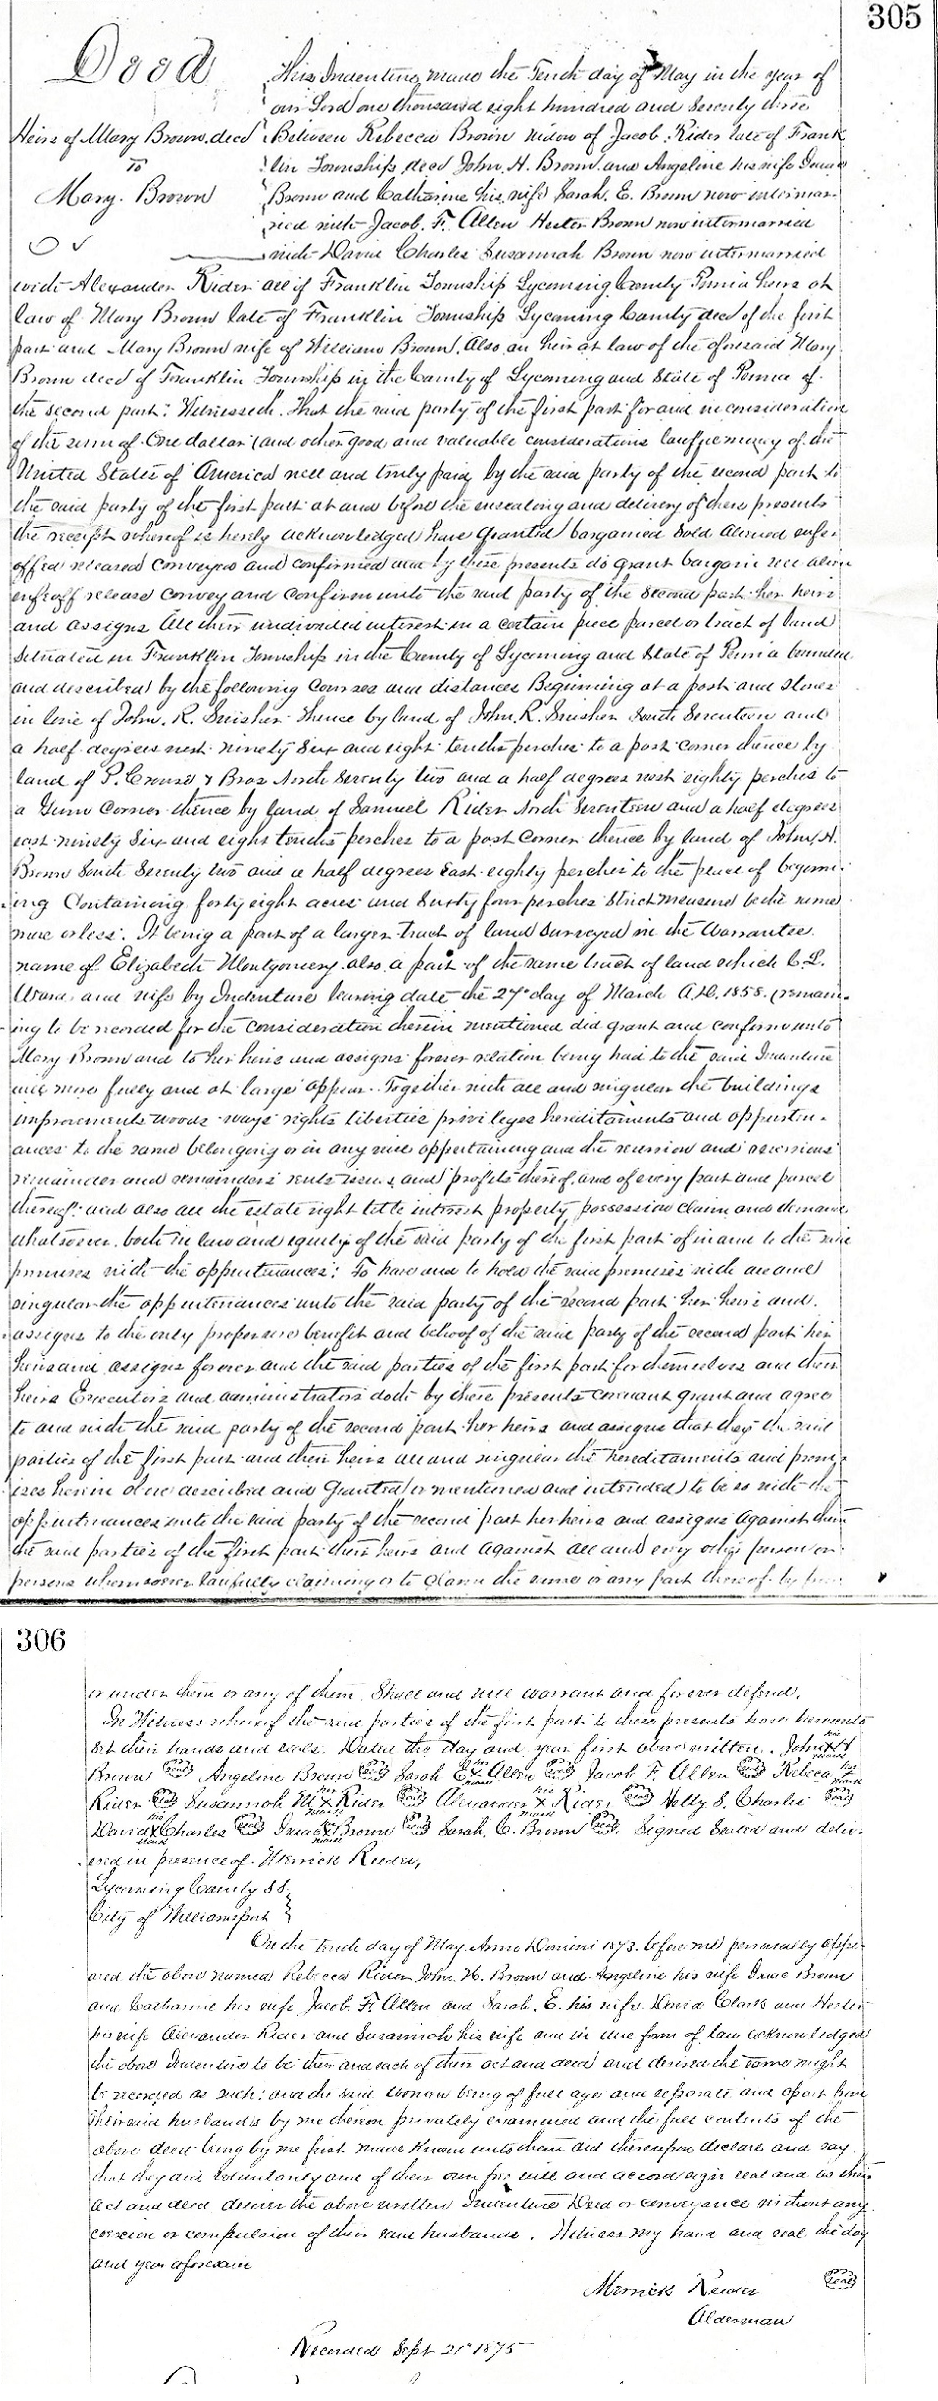 305
Deed
Heirs of Mary Brown decd
To
Mary Brown
This Indenture made the Tenth day of May in the year of
our Lord one thousand eight hundred and Seventy three
Between Rebecca Brown widow of Jacob Rider late of Frank
lin Township decd John H. Brown and Angeline his wife Isaac
Brown and Catharine his wife Sarah E. Brown now intermar-
ried with Jacob F. Allen Hester Brown now intermarried
with David Charles Susannah Brown now intermarried
with Alexander Rider all of Franklin Township Lycoming County Penna heirs at
law of Mary Brown late of Franklin Township Lycoming County decd of the first
part and Mary Brown wife of William Brown. Also an heir at law of the aforesaid Mary
Brown decd of Franklin Township in the County of Lycoming and State of Penna of
the second part: Witnesseth. That the said party of the first part for and in consideration
of the sum of One dollar (and other good and valuable considerations lawful money of the
United States of America well and truly paid by the said party of the second part to
the said party of the first part at and before the ensealing and delivery of these presents
the receipt whereof is hereby acknowledged have Granted bargained Sold aliened enfe-
offed released conveyed and confirmed and by these presents do grant bargain sell alien
enfeoff release convey and confirm unto the said party of the Second part her heirs
and assigns All their undivided interest in a certain piece parcel or tract of land
Situated in Franklin Township in the County of Lycoming and State of Penna bounded
and described by the following Courses and distances Beginning at a post and stones
in line of John. R. Swisher thence by land of John. R. Swisher South Seventeen and
a half degrees west ninety Six and eight tenths perches to a post corner thence by
land of P. Crouse & Bros North Seventy two and a half degrees west eighty perches to
a Gum Corner thence by land of Samuel Rider North Seventeen and a half degrees
east ninety Six and eight tenths perches to a post Corner thence by land of John H.
Brown South Seventy two and a half degrees East eighty perches to the place of beginn-
ing Containing forty eight acres and Sixty four perches Strict measure be the same
more or less. It being a part of a larger tract of land Surveyed in the Warrantee
name of Elizabeth Montgomery also a part of the same tract of land which C. L.
Ward and wife by Indenture bearing date the 27th day of March A.D. 1858. (remain-
ing to be recorded for the consideration therein mentioned did grant and confirm unto
Mary Brown and to her heirs and assigns forever relation being had to the said Indenture
will more fully and at large appear. Together with all and singular the buildings
improvements woods ways rights liberties privileges hereditaments and appurten-
ances to the same belonging or in any wise appertaining and the reversion and reversions
remainder and remainders rents issues and profits thereof and of every part and parcel
thereof: and also all the estate right title interest property possession claim and demand
whatsoever both in law and equity of the said party of the first part of in and to the said
premises with the appurtenances: To have and to hold the said premises with all and
singular the appurtenances unto the said party of the second part her heirs and
assigns to the only proper use benefit and behoof of the said party of the second part her
heirs and assigns forever and the said parties of the first part for themselves and their
heirs Executors and administrators doth by these presents covenant grant and agree
to and with the said party of the second part her heirs and assigns that they the said
parties of the first part and their heirs all and singular the hereditaments and prem-
ises herein above described and Granted or mentioned and intended to be so with the
appurtenances unto the said party of the second part her heirs and assigns Against them
the said parties of the first part their heirs and against all and every other person or
persons whomsoever lawfully claiming or to claim the same or any part thereof by from
306
or under them or any of them Shall and will warrant and forever defend.
In Witness whereof the said parties of the first part to these presents have hereunto
set their hands and seals. Dated the day and year first above written. John X H
Brown Seal Angeline Brown Seal Sarah E X Allen Seal Jacob F. Allen Seal Rebeca X
Rider Seal Susannah M X Rider Seal Alexander X Rider Seal Hetty S. Charles Seal
David X Charles Seal Isaac X Brown Seal Sarah. C. Brown Seal. Signed Sealed and deliv-
ered in presence of Merrick Reeder,
Lycoming County SS.
City of Williamsport
On the tenth day of May Anno Domini 1873. before me personally appe-
ared the above named Rebecca Rider John. H. Brown and Angeline his wife Isaac Brown
and Catharine his wife Jacob F. Allen and Sarah. E. his wife David Clark and Hester
his wife Alexander Rider and Susannah his wife and in due form of law acknowledged
the above Indenture to be their and each of their act and deed and desired the same might
be recorded as such: and the said women being of full ages and separate and apart from
their said husbands by me thereon privately examined and the full contents of the
above deed being by me first made Known unto them did thereupon declare and say
that they did voluntarily and of their own free will and accord sign seal and as their
act and deed deliver the above written Indenture Deed or conveyance without any
coercion or compulsion of their said husbands. Witness my hand and seal the day
and year aforesaid
Merrick Reeder Seal
Alderman
Recorded Sept 21st 1875